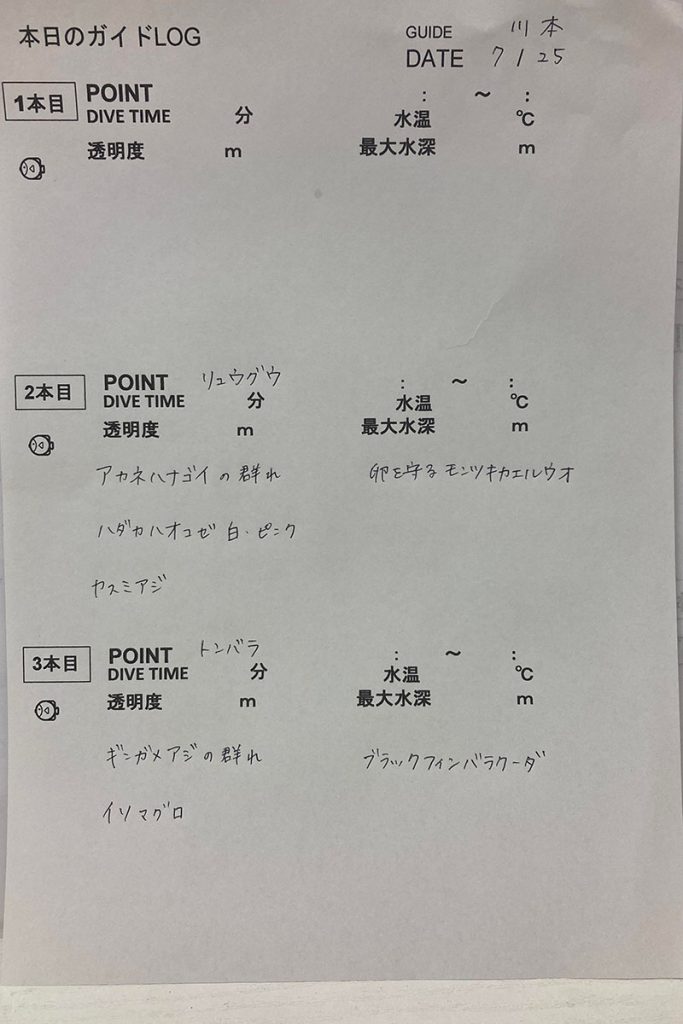 本日のガイドLOG
GUIDE 川本
DATE 7/25
1本目 POINT : ～ :
DIVE TIME 分 水温 ℃
透明度 m 最大水深 m
2本目 POINT リュウグウ : ～ :
DIVE TIME 分 水温 ℃
透明度 m 最大水深 m
アカネハナゴイの群れ 卵を守るモンツキカエルウオ
ハダカハオコゼ 白・ピンク
カスミアジ
3本目 POINT トンバラ : ～ :
DIVE TIME 分 水温 ℃
透明度 m 最大水深 m
ギンガメアジの群れ ブラックフィンバラクーダ
イソマグロ